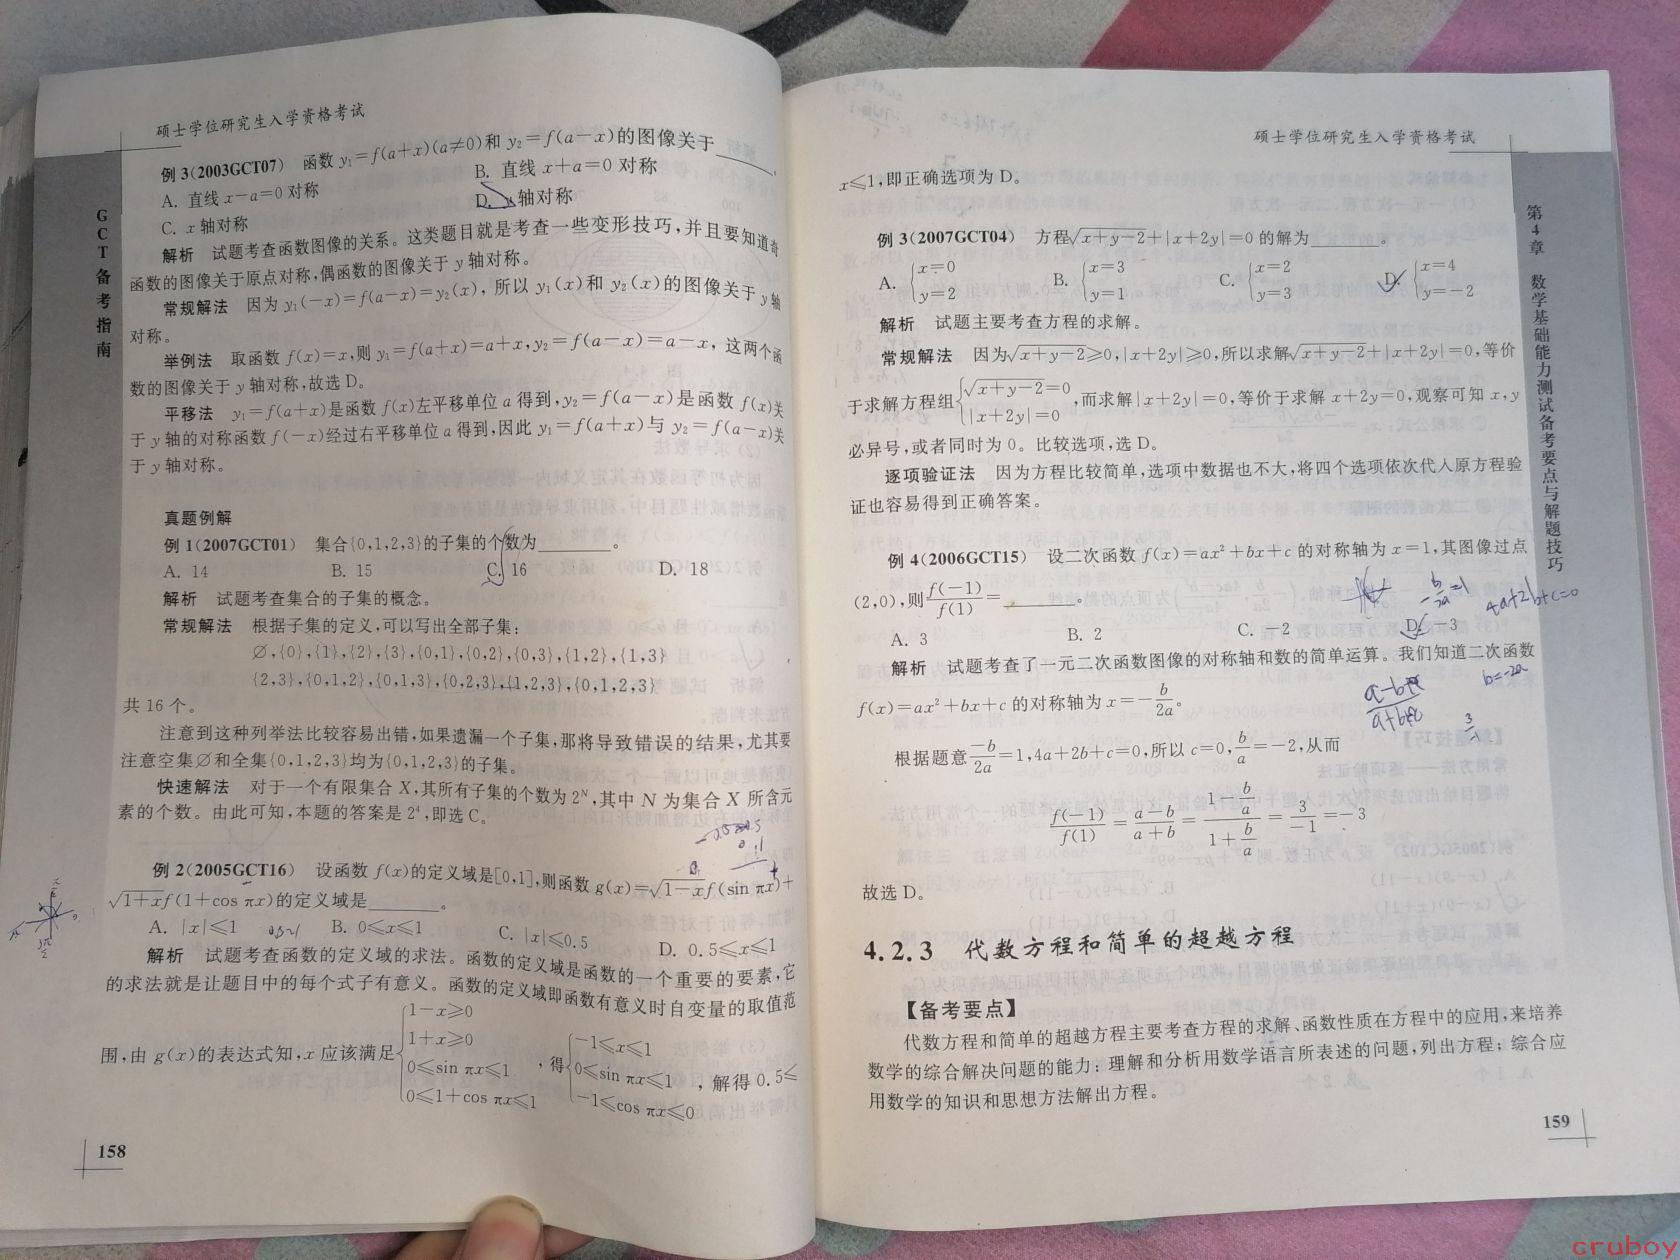 硕士学位研究生入学资格考试
GCT备考指南
例 3(2003GCT07) 函数 y₁=f(a+x)(a≠0)和 y₂=f(a−x)的图像关于________.
A. 直线 x−a=0 对称 B. 直线 x+a=0 对称
C. x 轴对称 D. y 轴对称
解析 试题考查函数图像的关系。这类题目就是考查一些变形技巧,并且要知道奇
函数的图像关于原点对称,偶函数的图像关于 y 轴对称。
常规解法 因为 y₁(−x)=f(a−x)=y₂(x), 所以 y₁(x)和 y₂(x)的图像关于 y 轴
对称。
举例法 取函数 f(x)=x,则 y₁=f(a+x)=a+x,y₂=f(a−x)=a−x, 这两个函
数的图像关于 y 轴对称,故选 D。
平移法 y₁=f(a+x)是函数 f(x)左平移单位 a 得到,y₂=f(a−x)是函数 f(x)关
于 y 轴的对称函数 f(−x)经过右平移单位 a 得到,因此 y₁=f(a+x)与 y₂=f(a−x)关
于 y 轴对称。
真题例解
例 1(2007GCT01) 集合{0,1,2,3}的子集的个数为________。
A. 14 B. 15 C. 16 D. 18
解析 试题考查集合的子集的概念。
常规解法 根据子集的定义,可以写出全部子集:
∅,{0},{1},{2},{3},{0,1},{0,2},{0,3},{1,2},{1,3}
{2,3},{0,1,2},{0,1,3},{0,2,3},{1,2,3},{0,1,2,3}
共 16 个。
注意到这种列举法比较容易出错,如果遗漏一个子集,那将导致错误的结果,尤其要
注意空集∅和全集{0,1,2,3}均为{0,1,2,3}的子集。
快速解法 对于一个有限集合 X,其所有子集的个数为 2ᴺ,其中 N 为集合 X 所含元
素的个数。由此可知,本题的答案是 2⁴,即选 C。
例 2(2005GCT16) 设函数 f(x)的定义域是[0,1],则函数 g(x)=√(1−x)f(sin πx)+
√(1+x)f(1+cos πx)的定义域是________。
A. |x|≤1 B. 0≤x≤1 C. |x|≤0.5 D. 0.5≤x≤1
解析 试题考查函数的定义域的求法。函数的定义域是函数的一个重要的要素,它
的求法就是让题目中的每个式子有意义。函数的定义域即函数有意义时自变量的取值范
围,由 g(x)的表达式知,x 应该满足{1−x≥0 1+x≥0 0≤sin πx≤1 0≤1+cos πx≤1 ,得{−1≤x≤1 0≤sin πx≤1 −1≤cos πx≤0 ,解得 0.5≤
158
硕士学位研究生入学资格考试
第4章 数学基础能力测试备考要点与解题技巧
x≤1,即正确选项为 D。
例 3(2007GCT04) 方程√(x+y−2)+|x+2y|=0 的解为________。
A. {x=0 y=2 B. {x=3 y=1 C. {x=2 y=3 D. {x=4 y=−2
解析 试题主要考查方程的求解。
常规解法 因为√(x+y−2)≥0,|x+2y|≥0,所以求解√(x+y−2)+|x+2y|=0,等价
于求解方程组{√(x+y−2)=0 |x+2y|=0 ,而求解|x+2y|=0,等价于求解 x+2y=0,观察可知 x,y
必异号,或者同时为 0。比较选项,选 D。
逐项验证法 因为方程比较简单,选项中数据也不大,将四个选项依次代人原方程验
证也容易得到正确答案。
例 4(2006GCT15) 设二次函数 f(x)=ax²+bx+c 的对称轴为 x=1,其图像过点
(2,0),则 f(−1)/f(1)=________。
−b/2a=1
4a+2b+c=0
A. 3 B. 2 C. −2 D. −3
解析 试题考查了一元二次函数图像的对称轴和数的简单运算。我们知道二次函数
b=−2a
f(x)=ax²+bx+c 的对称轴为 x=−b/2a。
根据题意 −b/2a=1,4a+2b+c=0,所以 c=0,b/a=−2,从而
f(−1)/f(1)=(a−b)/(a+b)=(1−b/a)/(1+b/a)=3/−1=−3
故选 D。
4.2.3 代数方程和简单的超越方程
【备考要点】
代数方程和简单的超越方程主要考查方程的求解、函数性质在方程中的应用,来培养
数学的综合解决问题的能力;理解和分析用数学语言所表述的问题,列出方程;综合应
用数学的知识和思想方法解出方程。
159
cruboy